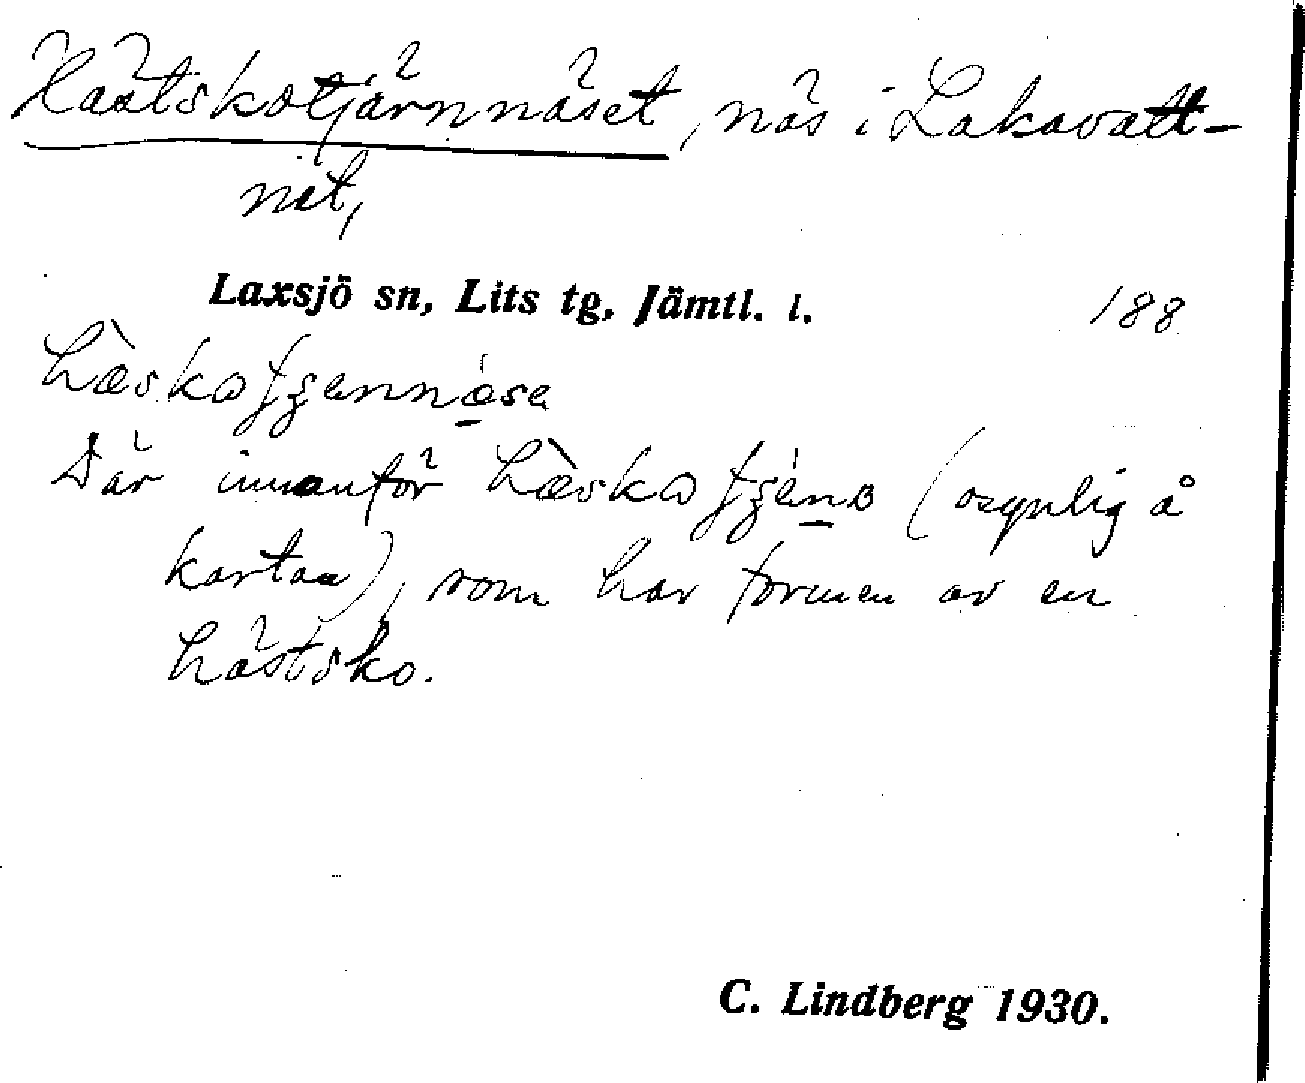 Hästskotjärnnäset, näs i Lakavatt-
net,
Laxsjö sn, Lits tg, Jämtl. l. 188
Där innanför (osynlig å
kartan), som har formen av en
hästsko.
C. Lindberg 1930.